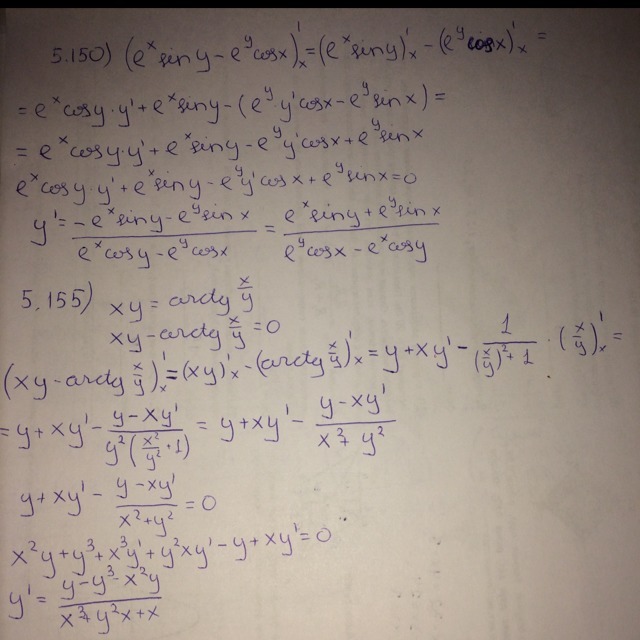 5.150) (e^x sin y - e^y cos x)'_x = (e^x sin y)'_x - (e^y cos x)'_x =
= e^x cos y · y' + e^x sin y - (e^y y' cos x - e^y sin x) =
= e^x cos y · y' + e^x sin y - e^y y' cos x + e^y sin x
e^x cos y · y' + e^x sin y - e^y y' cos x + e^y sin x = 0
y' = (-e^x sin y - e^y sin x)/(e^x cos y - e^y cos x) = (e^x sin y + e^y sin x)/(e^y cos x - e^x cos y)
5.155) xy = arctg x/y
xy - arctg x/y = 0
(xy - arctg x/y)'_x = (xy)'_x - (arctg x/y)'_x = y + xy' - 1/((x/y)^2 + 1) · (x/y)'_x =
= y + xy' - (y - xy')/(y^2 (x^2/y^2 + 1)) = y + xy' - (y - xy')/(x^2 + y^2)
y + xy' - (y - xy')/(x^2 + y^2) = 0
x^2 y + y^3 + x^3 y' + y^2 xy' - y + xy' = 0
y' = (y - y^3 - x^2 y)/(x^3 + y^2 x + x)